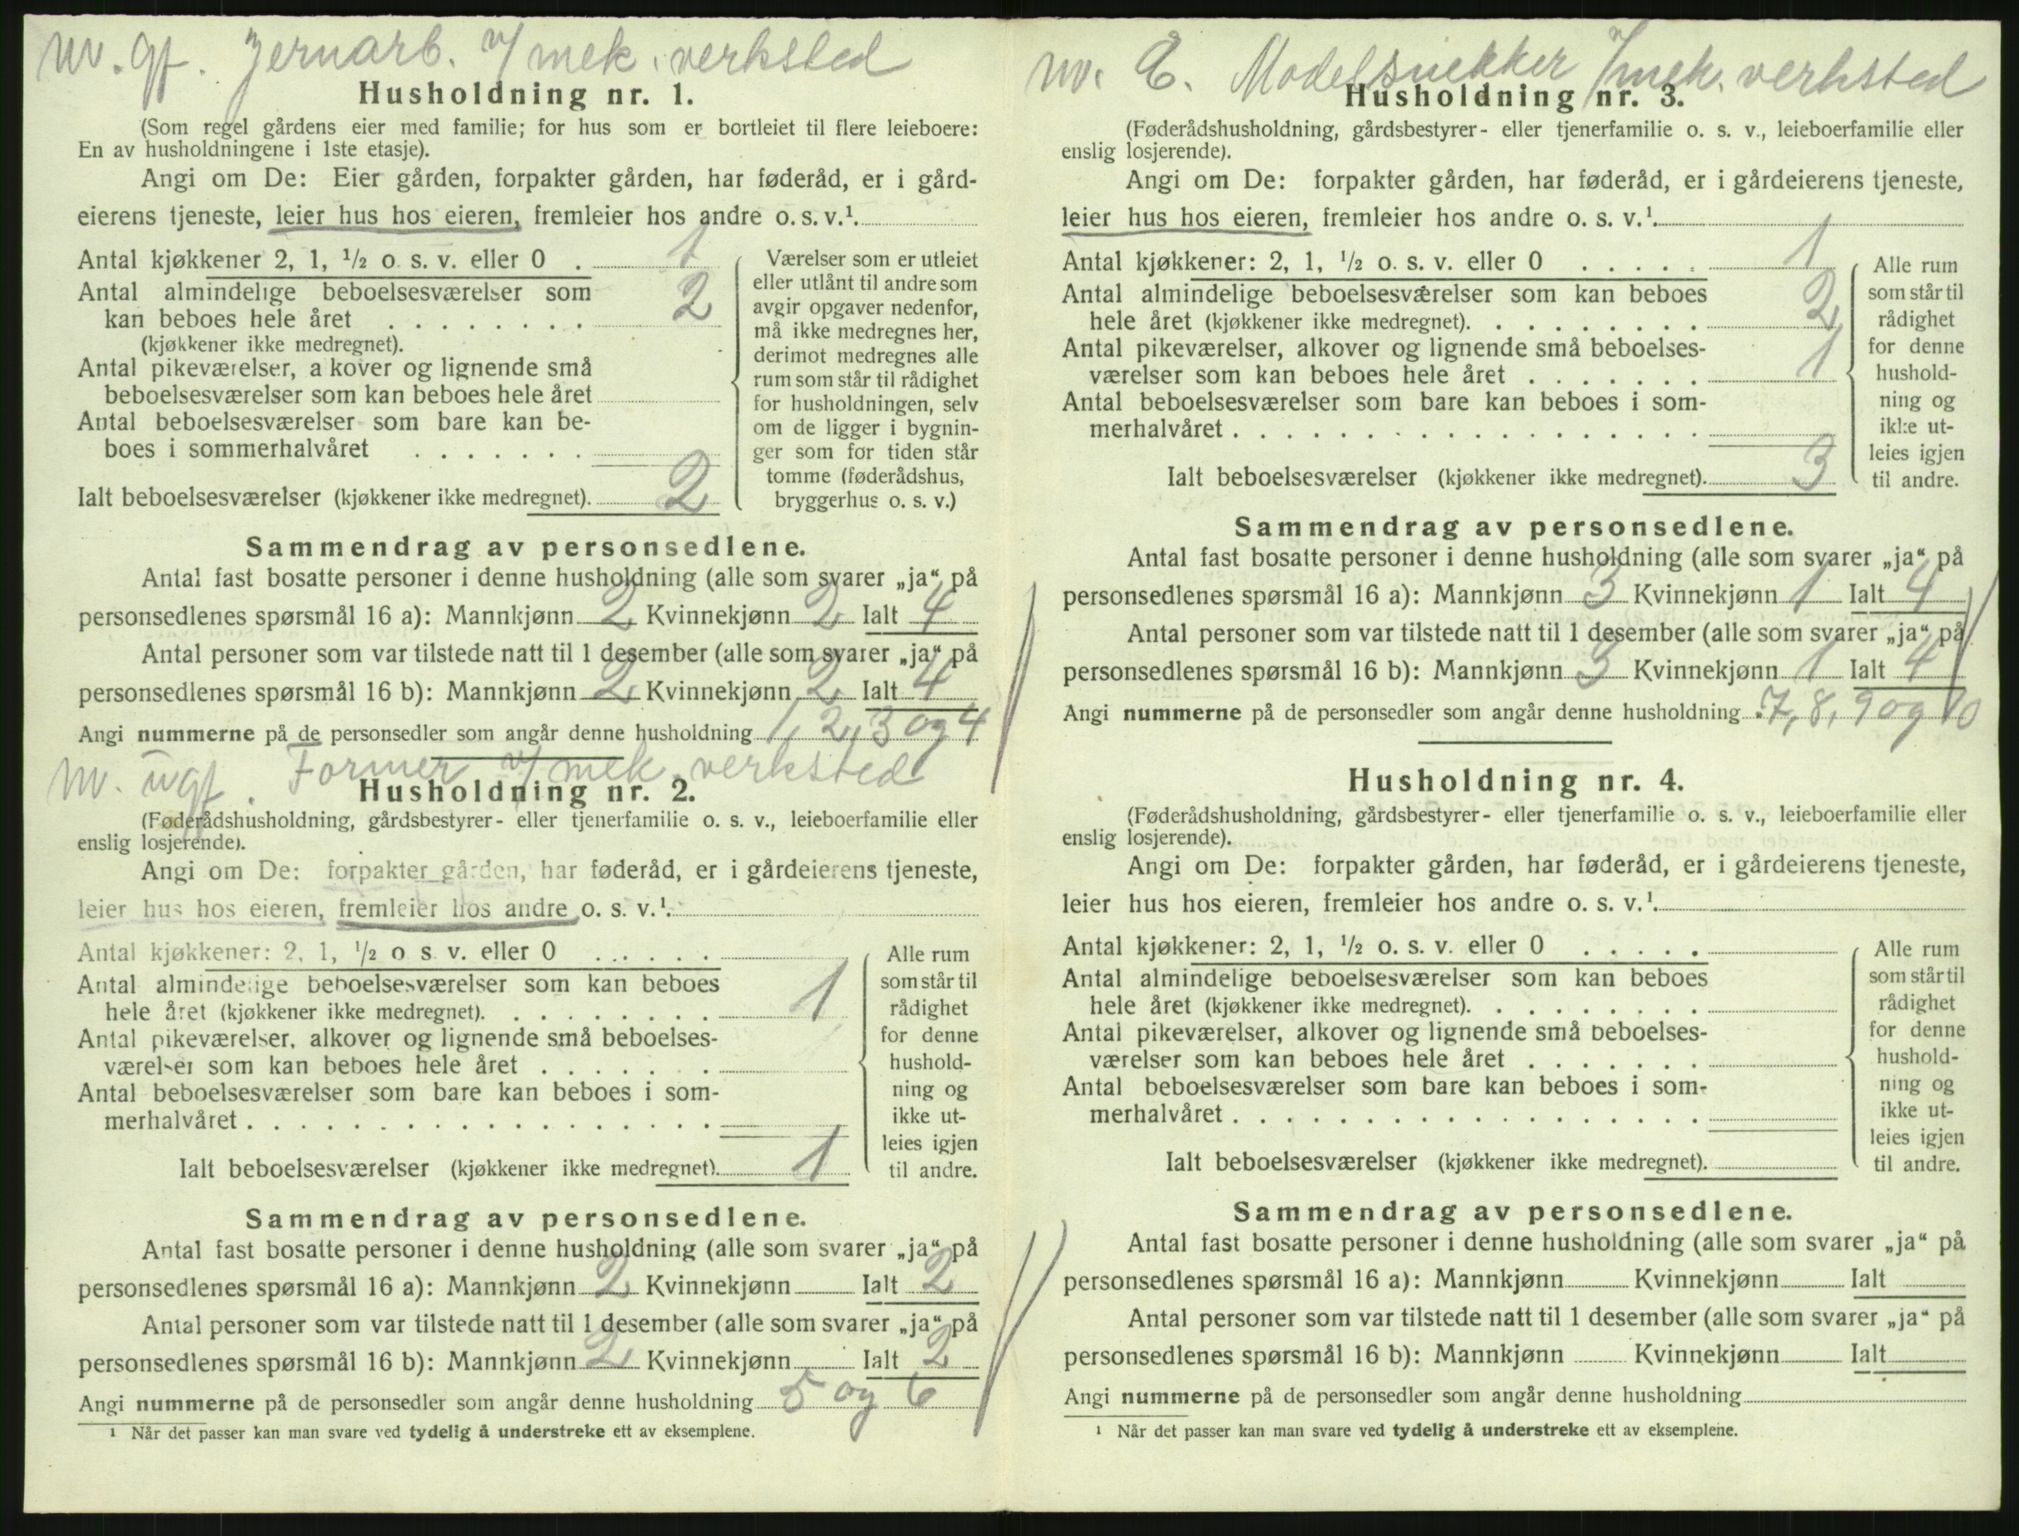 nv. gf. Jernarb. v/ mek. verksted
Husholdning nr. 1.
(Som regel gårdens eier med familie; for hus som er bortleiet til flere leieboere:
En av husholdningene i 1ste etasje).
Angi om De: Eier gården, forpakter gården, har føderåd, er i gård-
eierens tjeneste, leier hus hos eieren, fremleier hos andre o. s. v.¹
Antal kjøkkener 2, 1, ½ o. s. v. eller 0 . 1
Antal almindelige beboelsesværelser som
kan beboes hele året . . . . . . . . 2
(kjøkkener ikke medregnet).
Antal pikeværelser, a kover og lignende små
beboelsesværelser som kan beboes hele året
Antal beboelsesværelser som bare kan be-
boes i sommerhalvåret . . . . . . .
Ialt beboelsesværelser (kjøkkener ikke medregnet). 2
Værelser som er utleiet
eller utlånt til andre som
avgir opgaver nedenfor,
må ikke medregnes her,
derimot medregnes alle
rum som står til rådighet
for husholdningen, selv
om de ligger i bygnin-
ger som for tiden står
tomme (føderådshus,
bryggerhus o. s. v.)
Sammendrag av personsedlene.
Antal fast bosatte personer i denne husholdning (alle som svarer „ja“ på
personsedlenes spørsmål 16 a): Mannkjønn 2 Kvinnekjønn 2 Ialt 4
Antal personer som var tilstede natt til 1 desember (alle som svarer „ja“ på
personsedlenes spørsmål 16 b): Mannkjønn 2 Kvinnekjønn 2 Ialt 4
Angi nummerne på de personsedler som angår denne husholdning 1, 2, 3 og 4
nv. ugf. Former v/ mek. verksted
Husholdning nr. 2.
(Føderådshusholdning, gårdsbestyrer- eller tjenerfamilie o. s. v., leieboerfamilie eller
enslig losjerende).
Angi om De: forpakter gården, har føderåd, er i gårdeierens tjeneste,
leier hus hos eieren, fremleier hos andre o. s. v.¹.
Antal kjøkkener: 2, 1, ½ o s v. eller 0 . . . . .
Antal almindelige beboelsesværelser som kan beboes
hele året (kjøkkener ikke medregnet). . . . . . . . . 1
Antal pikeværelser, alkover og lignende små beboelses-
værelser som kan beboes hele året . . . . . . .
Antal beboelsesværelser som bare kan beboes i som-
merhalvåret . . . . . . . . . . . . . . . . . .
Ialt beboelsesværelser (kjøkkener ikke medregnet). 1
Alle rum
som står til
rådighet
for denne
hushold-
ning og
ikke ut-
leies igjen
til andre.
Sammendrag av personsedlene.
Antal fast bosatte personer i denne husholdning (alle som svarer „ja“ på
personsedlenes spørsmål 16 a): Mannkjønn 2 Kvinnekjønn Ialt 2
Antal personer som var tilstede natt til 1 desember (alle som svarer „ja“ på
personsedlenes spørsmål 16 b): Mannkjønn 2 Kvinnekjønn Ialt 2
Angi nummerne på de personsedler som angår denne husholdning 5 og 6
¹ Når det passer kan man svare ved tydelig å understreke ett av eksemplene.
nv. E. Modelsnekker v/ mek. verksted
Husholdning nr. 3.
(Føderådshusholdning, gårdsbestyrer- eller tjenerfamilie o. s. v., leieboerfamilie eller
enslig losjerende).
Angi om De: forpakter gården, har føderåd, er i gårdeierens tjeneste,
leier hus hos eieren, fremleier hos andre o. s. v.¹.
Antal kjøkkener: 2, 1, ½ o. s. v. eller 0 . . . . . 1
Antal almindelige beboelsesværelser som kan beboes
hele året (kjøkkener ikke medregnet). . . . . . . . . 2
Antal pikeværelser, alkover og lignende små beboelses-
værelser som kan beboes hele året . . . . . . . 1
Antal beboelsesværelser som bare kan beboes i som-
merhalvåret . . . . . . . . . . . . . . . . . .
Ialt beboelsesværelser (kjøkkener ikke medregnet). 3
Alle rum
som står til
rådighet
for denne
hushold-
ning og
ikke ut-
leies igjen
til andre.
Sammendrag av personsedlene.
Antal fast bosatte personer i denne husholdning (alle som svarer „ja“ på
personsedlenes spørsmål 16 a): Mannkjønn 3 Kvinnekjønn 1 Ialt 4
Antal personer som var tilstede natt til 1 desember (alle som svarer „ja“ på
personsedlenes spørsmål 16 b): Mannkjønn 3 Kvinnekjønn 1 Ialt 4
Angi nummerne på de personsedler som angår denne husholdning 7, 8, 9 og 10
Husholdning nr. 4.
(Føderådshusholdning, gårdsbestyrer- eller tjenerfamilie o. s. v., leieboerfamilie eller
enslig losjerende).
Angi om De: forpakter gården, har føderåd, er i gårdeierens tjeneste,
leier hus hos eieren, fremleier hos andre o. s. v.¹.
Antal kjøkkener: 2, 1, ½ o. s. v. eller 0 . . . . .
Antal almindelige beboelsesværelser som kan beboes
hele året (kjøkkener ikke medregnet). . . . . . . . .
Antal pikeværelser, alkover og lignende små beboelses-
værelser som kan beboes hele året . . . . . . .
Antal beboelsesværelser som bare kan beboes i som-
merhalvåret . . . . . . . . . . . . . . . . . .
Ialt beboelsesværelser (kjøkkener ikke medregnet).
Alle rum
som står til
rådighet
for denne
hushold-
ning og
ikke ut-
leies igjen
til andre.
Sammendrag av personsedlene.
Antal fast bosatte personer i denne husholdning (alle som svarer „ja“ på
personsedlenes spørsmål 16 a): Mannkjønn Kvinnekjønn Ialt
Antal personer som var tilstede natt til 1 desember (alle som svarer „ja“ på
personsedlenes spørsmål 16 b): Mannkjønn Kvinnekjønn Ialt
Angi nummerne på de personsedler som angår denne husholdning
¹ Når det passer kan man svare ved tydelig å understreke ett av eksemplene.